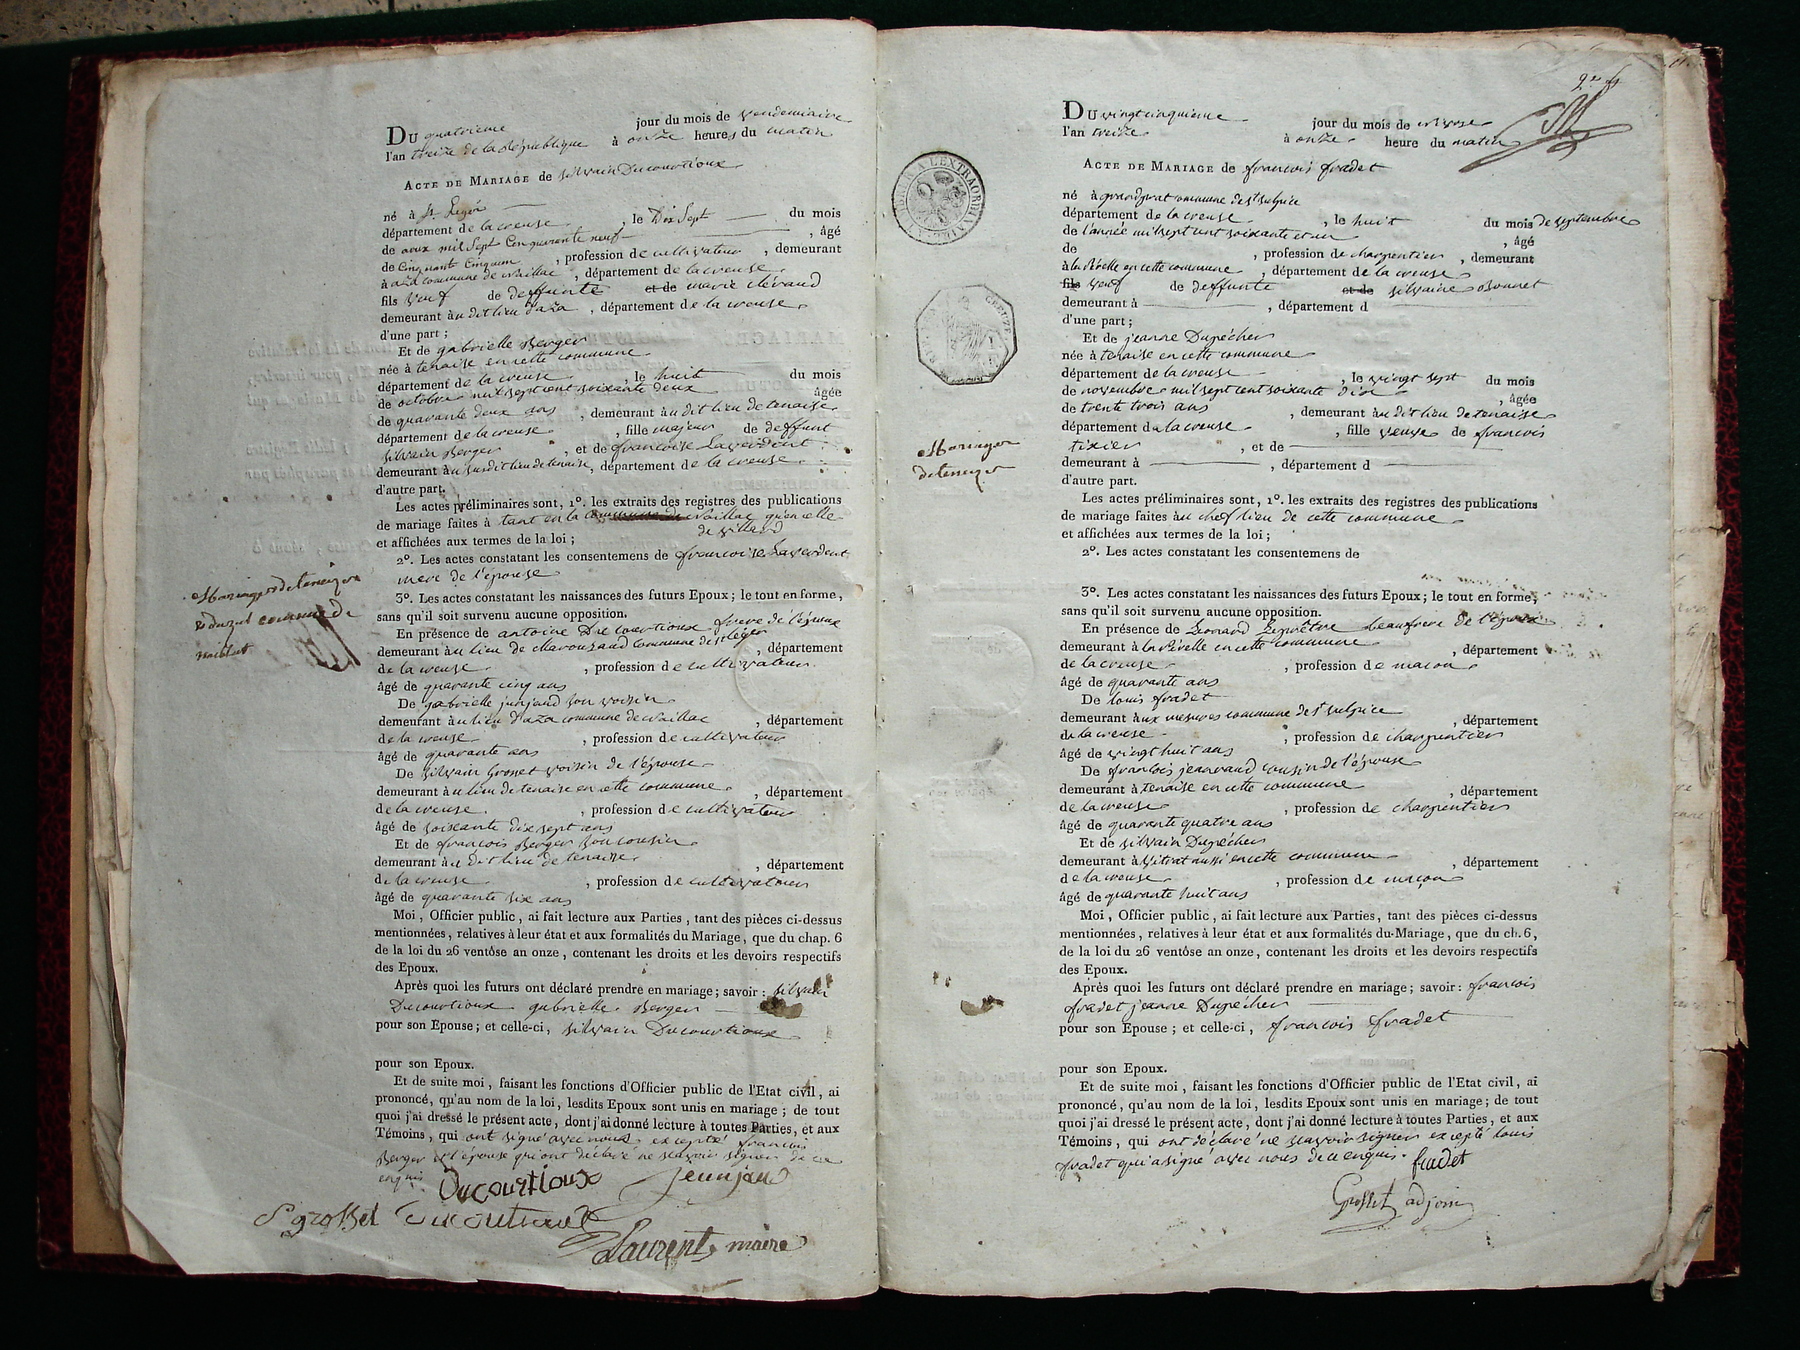 Du quatrieme jour du mois de vendemiaire
l'an treize de la république à onze heures du matin
Acte de Mariage de silvain Ducourtioux
né à St Leger
département de la creuse, le Dix Sept du mois
de aoux mil Sept Cenquarante neuf, âgé
de Cinquante Cinq ans, profession de cultivateur, demeurant
à aza commune de Naillac, département de la creuse
fils veuf de deffunte et de marie clérand
demeurant au dit lieu d'aza, département de la creuse
d'une part ;
Et de gabrielle Berger
née à tenaise en cette commune
département de la creuse, le huit du mois
de octobre mil sept cent soixante deux âgée
de quarante deux ans, demeurant au dit lieu de tenaise
département de la creuse, fille majeur de deffunt
silvain Berger, et de françoise Laverdent
demeurant au susdit lieu de tenaise, département de la creuse
d'autre part.
Les actes préliminaires sont, 1°. les extraits des registres des publications
de mariage faites à tant en la commune de Naillac qu'en celle
de villard
et affichées aux termes de la loi ;
2°. Les actes constatant les consentemens de francoise Laverdent
mere de l'épouse
3°. Les actes constatant les naissances des futurs Epoux ; le tout en forme,
sans qu'il soit survenu aucune opposition.
En présence de antoine Ducourtioux frere de l'époux
demeurant au lieu de commune de St léger, département
de la creuse, profession de cultivateur
âgé de quarante cinq ans
De gabrielle junjaud son voisin
demeurant au lieu d'aza commune de Naillac, département
de la creuse, profession de cultivateur
âgé de quarante ans
De silvain Grosset voisin de l'épouse
demeurant au lieu de tenaise en cette commune, département
de la creuse, profession de cultivateur
âgé de soixante dix sept ans
Et de françois Berger son cousin
demeurant au dit lieu de tenaise, département
de la creuse, profession de cultivateur
âgé de quarante six ans
Moi, Officier public, ai fait lecture aux Parties, tant des pièces ci-dessus
mentionnées, relatives à leur état et aux formalités du Mariage, que du chap. 6
de la loi du 26 ventôse an onze, contenant les droits et les devoirs respectifs
des Epoux.
Après quoi les futurs ont déclaré prendre en mariage ; savoir : silvain
Ducourtioux gabrielle Berger
pour son Epouse ; et celle-ci, silvain Ducourtioux
pour son Epoux.
Et de suite moi, faisant les fonctions d'Officier public de l'Etat civil, ai
prononcé, qu'au nom de la loi, lesdits Epoux sont unis en mariage ; de tout
quoi j'ai dressé le présent acte, dont j'ai donné lecture à toutes Parties, et aux
Témoins, qui ont signé avec nous excepté francois
Berger et l'épouse qui ont déclaré ne scavoir signer de ce
enquis
Ducourtioux Jeunjaud
S grosset Ducourtioux
Laurent maire
Mariage de
commune de
Du vingt cinquieme jour du mois de nivose
l'an treize à onze heure du matin
Acte de Mariage de françois fradet
né à grandprat commune de st sulpice
département de la creuse, le huit du mois de septembre
de l'année mil sept cent soixante et un, âgé
de, profession de charpentier, demeurant
à la Révelle en cette commune, département de la creuse
fils veuf de deffunte et de silvaine Bonnet
demeurant à, département d
d'une part ;
Et de jeanne Dupécher
née à tenaise en cette commune
département de la creuse, le vingt sept du mois
de novembre mil sept cent soixante dix, âgée
de trente trois ans, demeurant au dit lieu de tenaise
département de la creuse, fille veuve de francois
tixier, et de
demeurant à, département d
d'autre part.
Les actes préliminaires sont, 1°. les extraits des registres des publications
de mariage faites au chef lieu de cette commune
et affichées aux termes de la loi ;
2°. Les actes constatant les consentemens de
3°. Les actes constatant les naissances des futurs Epoux ; le tout en forme,
sans qu'il soit survenu aucune opposition.
En présence de Léonard Leprêtre beaufrere de l'époux
demeurant à la Révelle en cette commune, département
de la creuse, profession de macon
âgé de quarante ans
De louis fradet
demeurant aux mesures commune de st sulpice, département
de la creuse, profession de charpentier
âgé de vingt huit ans
De françois jeanraud cousin de l'épouse
demeurant à tenaise en cette commune, département
de la creuse, profession de charpentier
âgé de quarante quatre ans
Et de silvain Dupécher
demeurant à aussi en cette commune, département
de la creuse, profession de maçon
âgé de quarante huit ans
Moi, Officier public, ai fait lecture aux Parties, tant des pièces ci-dessus
mentionnées, relatives à leur état et aux formalités du Mariage, que du ch. 6,
de la loi du 26 ventôse an onze, contenant les droits et les devoirs respectifs
des Epoux.
Après quoi les futurs ont déclaré prendre en mariage ; savoir : francois
fradet jeanne Dupécher
pour son Epouse ; et celle-ci, francois fradet
pour son Epoux.
Et de suite moi, faisant les fonctions d'Officier public de l'Etat civil, ai
prononcé, qu'au nom de la loi, lesdits Epoux sont unis en mariage ; de tout
quoi j'ai dressé le présent acte, dont j'ai donné lecture à toutes Parties, et aux
Témoins, qui ont déclaré ne scavoir signer excepté louis
fradet qui a signé avec nous de ce enquis. fradet
Grosset adjoint
Mariage